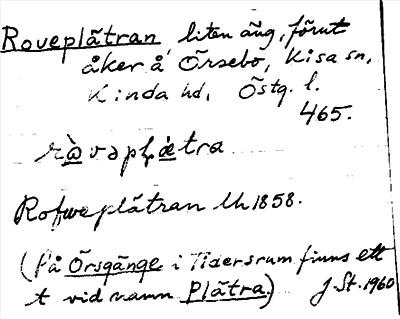 Roveplätran liten äng, förut
åker å Örsebo, Kisa sn,
Kinda hd, Östg. l.
465.
rò̱vəpḷæ̀tra
Rofweplätran Lh 1858.
(På Örsgänge i Tidersrum finns ett
t vid namn Plätra) J. St. 1960